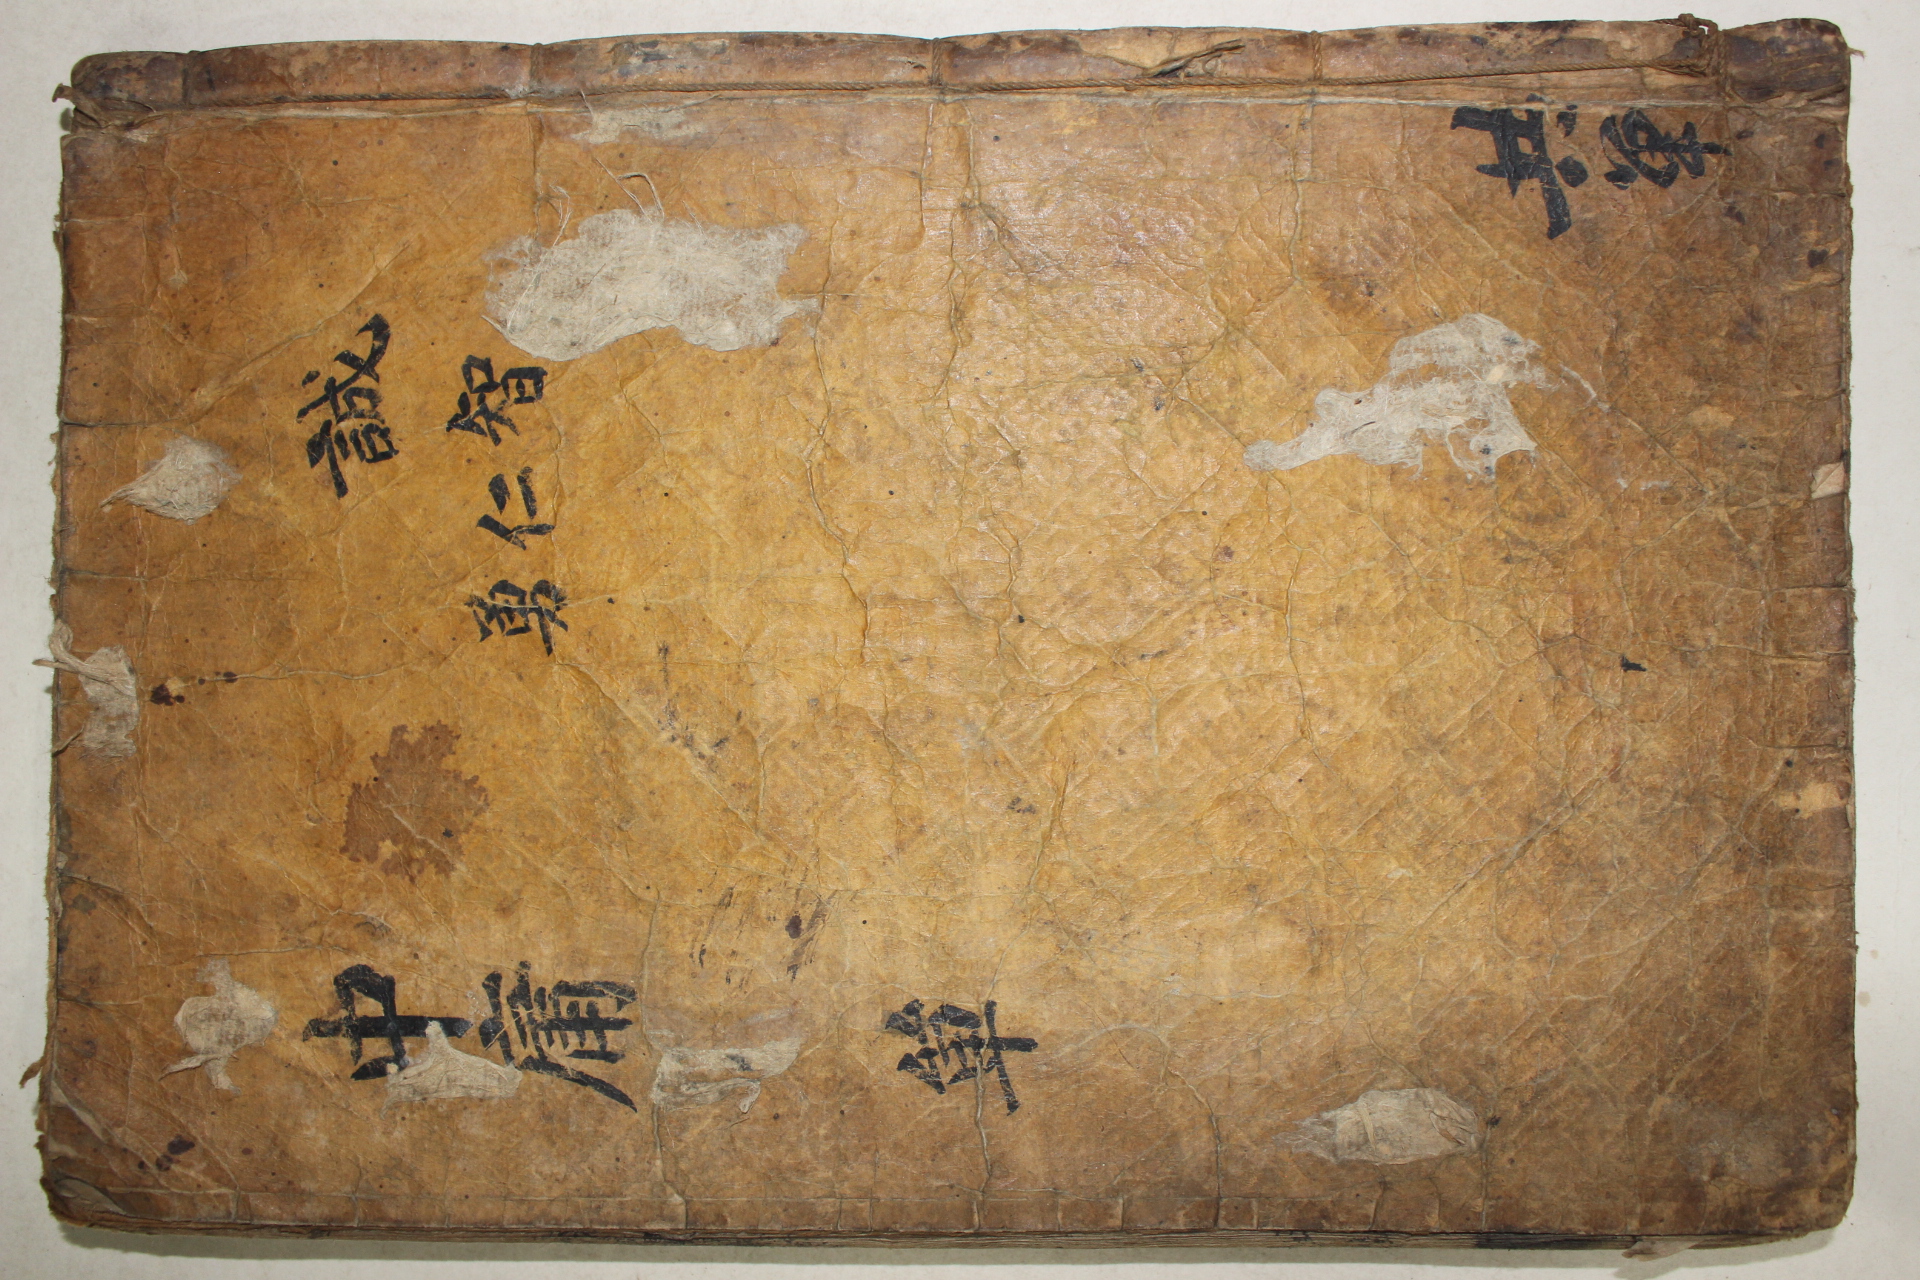 共單
誠
智仁勇
中庸 單